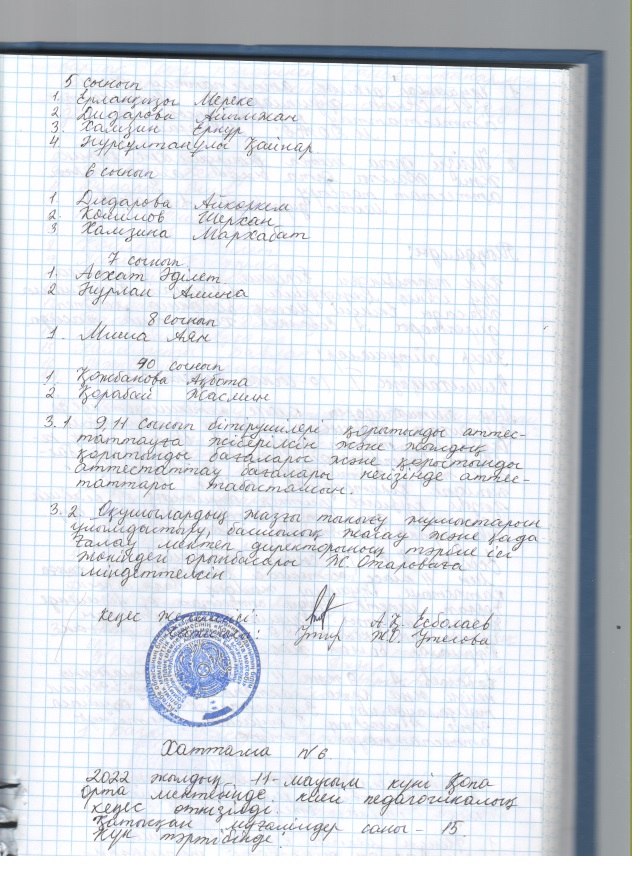 5 сынып
1. Ерланқызы Мереке
2. Дидарова Айымжан
3. Хамзин Ернур
4. Нурсултанұлы Қайнар
6 сынып
1. Дидарова Айкоркем
2. Коптлов Шерхан
3 Хамзина Мархабат
7 сынып
1. Асхат Әділет
2 Нурлан Амина
8 сынып
1. Миша Аян
10 сынып
1 Қожбанова Ақбота
2 Қорабай Жасмин
3.1. 9,11 сынып бітірушілері қорытынды аттес-
таттауға жіберілсін және жылдық
қорытынды бағалары және қорытынды
аттестаттау бағалары негізінде аттес-
таттары табысталсын.
3.2. Оқушылардың жазғы тынығу жумыстарын
ұйымдыстыру, басшылық жасау және қада
ғалау мектеп директорының тәрбие ісі
жөніндегі орынбасары Ж Отароваға
міндеттелсін
Кеңес жетекшісі: А.Қ. Есболаев
Ж.Ә. Утегова
Хаттама N 6
2022 жылдың 11-маусым күні Қопа
орта мектебінде кіші педагогикалық
кеңес өткізілді.
Қатысқан мұғалімдер саны - 15.
Күн тәртібінде